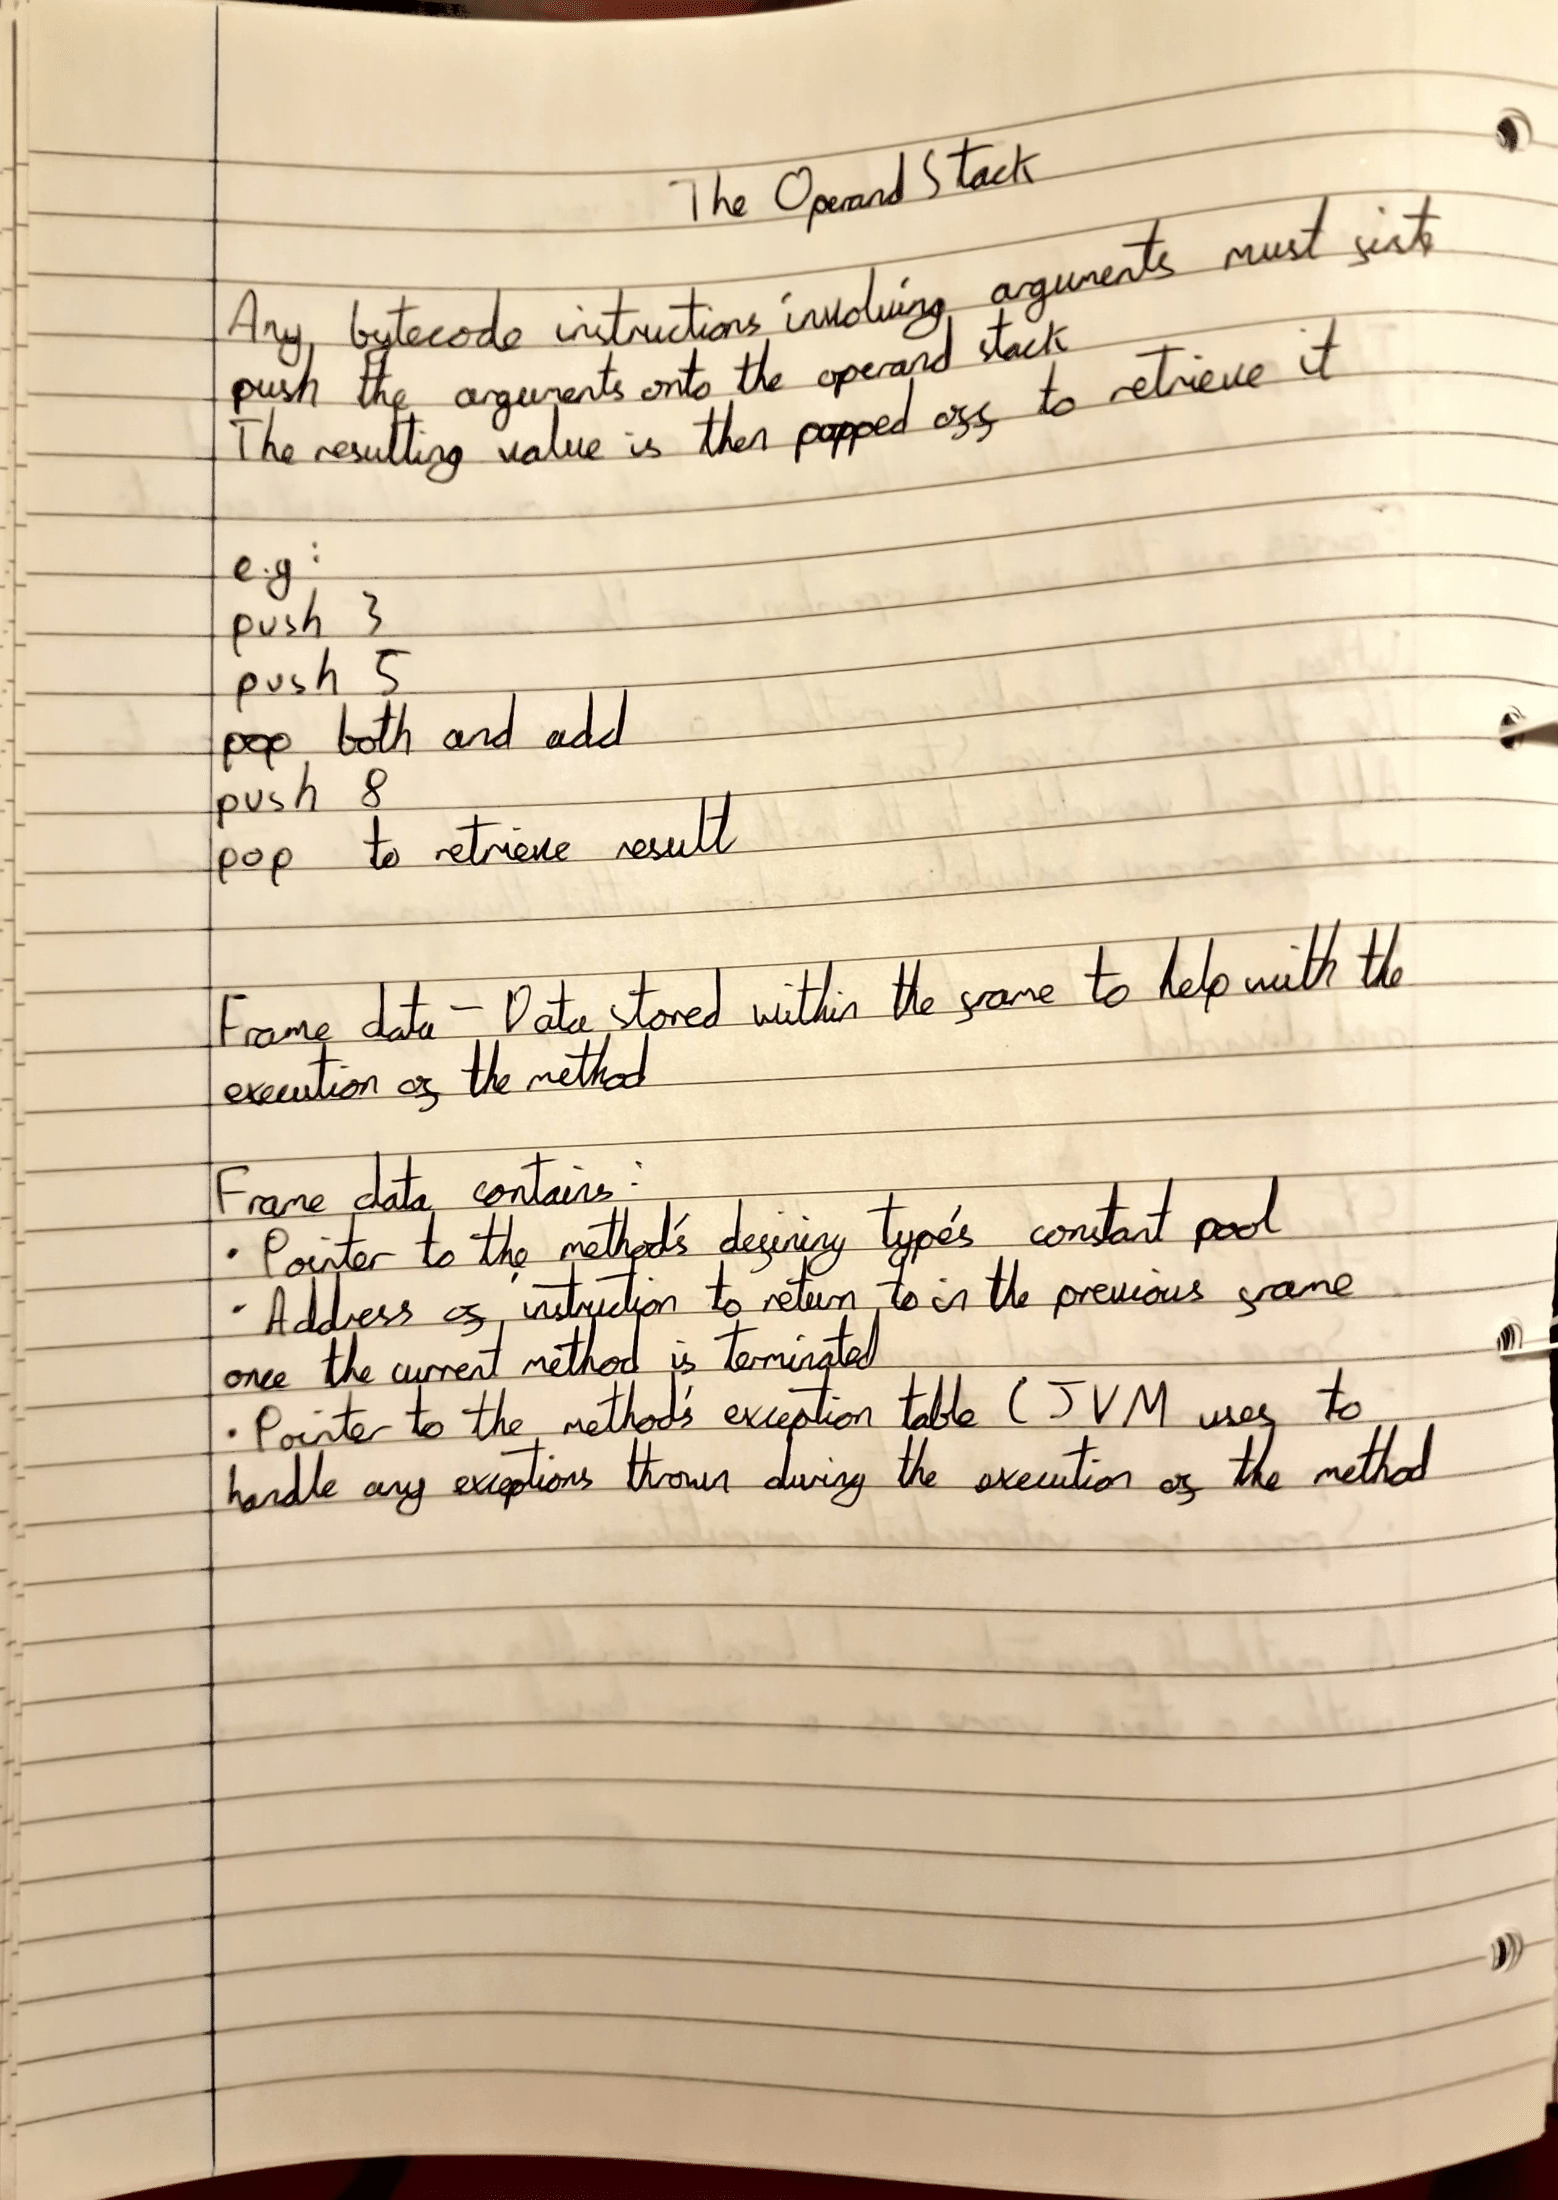 The Operand Stack
Any bytecode instructions involving arguments must first
push the arguments onto the operand stack
The resulting value is then popped off to retrieve it
e.g:
push 3
push 5
pop both and add
push 8
pop to retrieve result
Frame data - Data stored within the frame to help with the
execution of the method
Frame data contains:
• Pointer to the method's defining type's constant pool
• Address of instruction to return to in the previous frame
once the current method is terminated
• Pointer to the method's exception table (JVM uses to
handle any exceptions thrown during the execution of the method